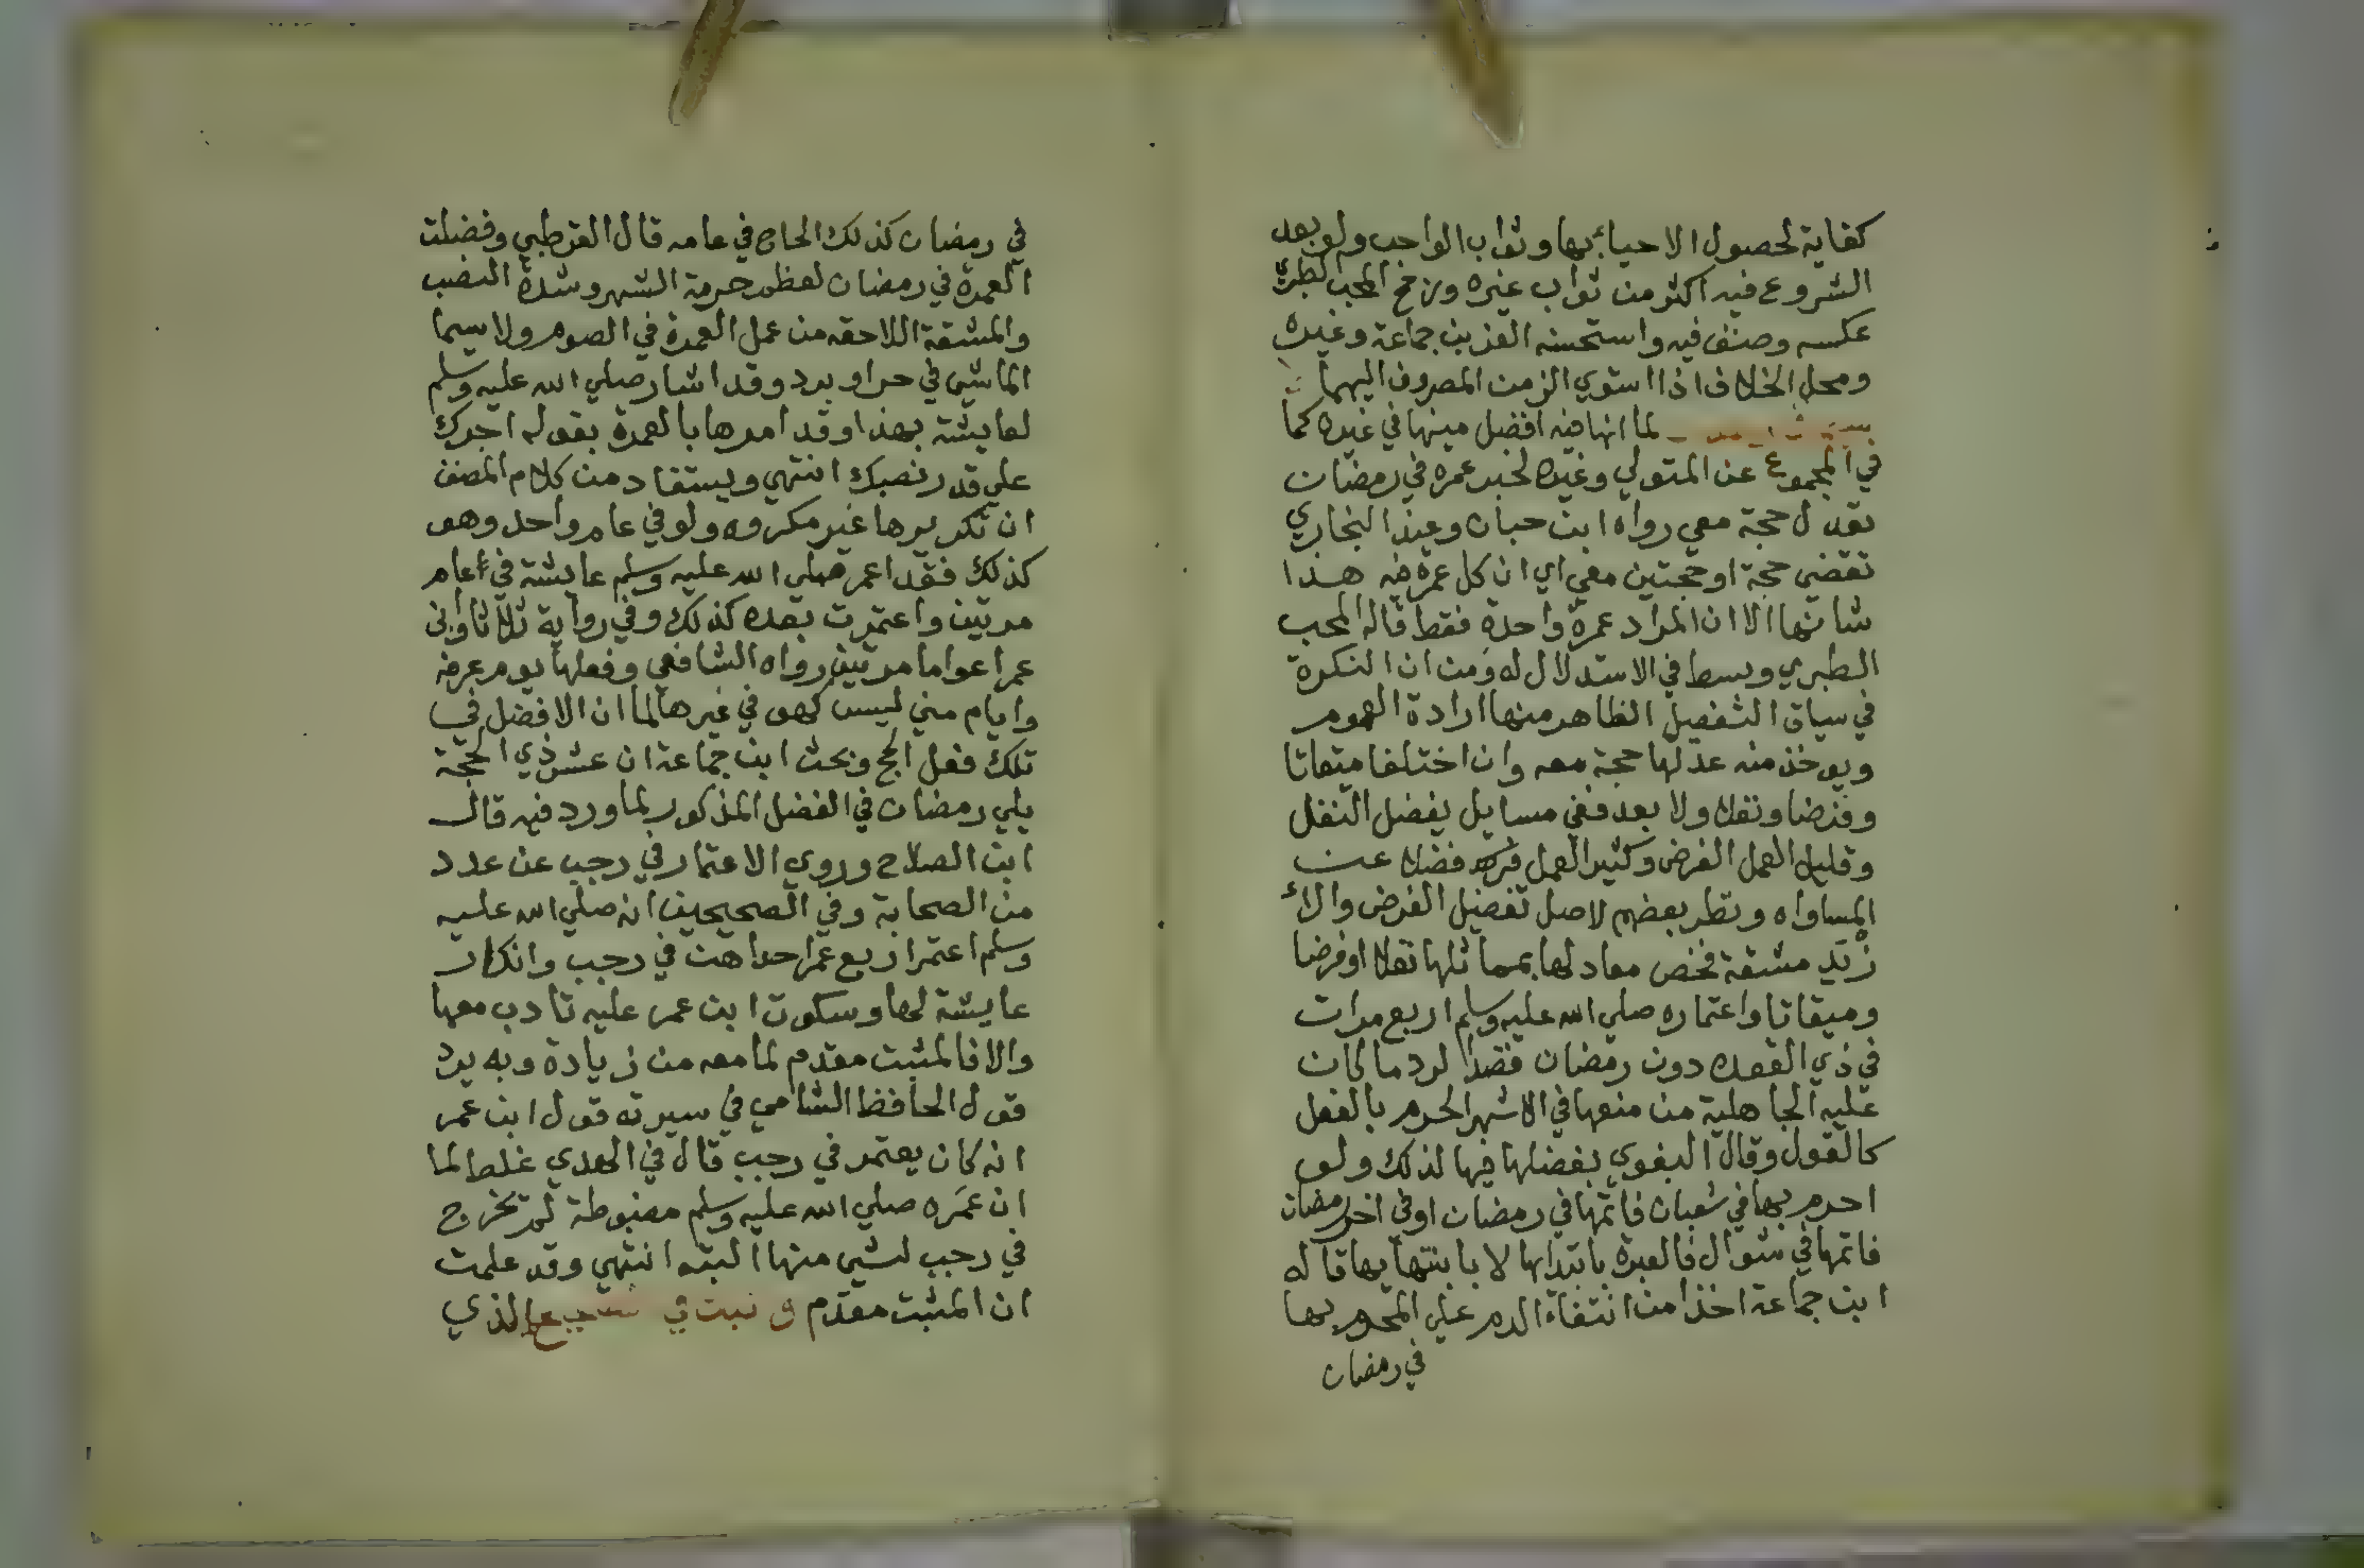 كفاية لحصول الاحياء بها وثواب الواجب ولو بعد
الشروع فيه اكثر من ثواب غيره ورجح المحب الطبري
عكسه وصنف فيه واستحسنه العز بن جماعة وغيره
ومحل الخلاف اذا استوي الزمن المصروف اليهما
لما انها فيه افضل منها في غيره كما
في المجموع عن المتولي وغيره لخبر عمرة في رمضان
تعدل حجة معي رواه ابن حبان وعند البخاري
تقضي حجة او حجتين معي اي ان كل عمرة فيه هذا
شانها الا ان المراد عمرة واحدة فقط قاله المحب
الطبري وبسط في الاستدلال له ومن ان النكرة
في سياق التفصيل الظاهر منها ارادة العموم
ويوخذ منه عدلها حجة معه وان اختلفا ميقاتا
وفرضا ونفلا ولا بعد ففي مسايل يفضل النفل
وقليل العمل الفرض وكثير العمل فضلا عن
المساواه ونظر بعضهم لاصل تفضيل الفرض والا
زيد مشقة فخص معادلها بمماثلها نفلا او فرضا
وميقاتا واعتماره صلي الله عليه وسلم اربع مرات
في ذي القعده دون رمضان قصدا لرد ما كان
عليه الجاهلية من منعها في الاشهر الحرم بالفعل
كالقول وقال البغوي بفضلها فيها لذلك ولو
احرم بها في شعبان فاتمها في رمضان او في اخر رمضان
فاتمها في شوال فالعبرة بابتدايها لا بانتهايها قاله
ابن جماعة اخذا من انتفاء الدم علي المحرم بها
في رمضان
في رمضان كذلك الحاج في عامه قال القرطبي وفضلت
العمرة في رمضان لعظم حرمة الشهر وشدة النصب
والمشقة اللاحقه من عمل العمرة في الصوم ولا سيما
الماشي في حر او برد وقد اشار صلي الله عليه وسلم
لعايشة بهذا وقد امرها بالعمرة بقوله اجرك
علي قدر نصبك انتهي ويستفاد من كلام المصنف
ان تكريرها غير مكروه ولو في عام واحد وهو
كذلك فقد اعمر صلي الله عليه وسلم عايشة في عام
مرتين واعتمرت بعده كذلك وفي رواية ثلاثا وابن
عمر اعواما مرتين رواه الشافعي وفعلها يوم عرفة
وايام مني ليس كهو في غيرها لما ان الافضل في
تلك فعل الحج وبحث ابن جماعة ان عشر ذي الحجة
يلي رمضان في الفضل المذكور لما ورد فيه قال
ابن الصلاح وروي الاعتمار في رجب عن عدد
من الصحابة وفي الصحيحين انه صلي الله عليه
وسلم اعتمر اربع عمر احداهن في رجب وانكار
عايشة لها وسكوت ابن عمر عليه تادب معها
والا فالمثبت مقدم لما معه من زيادة وبه يرد
قول الحافظ الشامي في سيرته قول ابن عمر
انه كان يعتمر في رجب قال في الهدي غلط لما
ان عمره صلي الله عليه وسلم مضبوطة لم تخرج
في رجب لشي منها البته انتهي وقد علمت
ان المثبت مقدم الذي